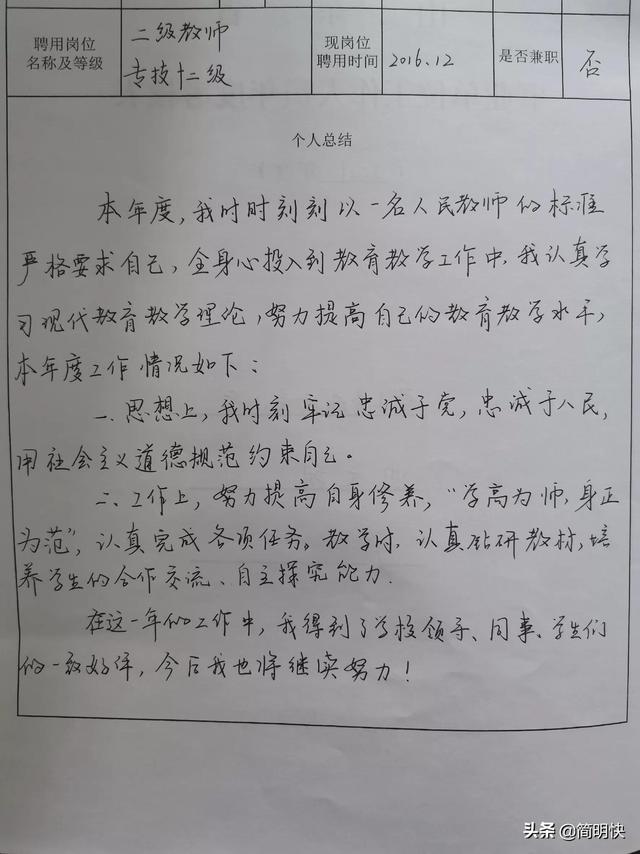 聘用岗位名称及等级 二级教师 专技十二级 现岗位聘用时间 2016.12 是否兼职 否
个人总结
本年度,我时时刻刻以一名人民教师的标准
严格要求自己,全身心投入到教育教学工作中,我认真学
习现代教育教学理论,努力提高自己的教育教学水平,
本年度工作情况如下:
一、思想上,我时刻牢记忠诚于党,忠诚于人民,
用社会主义道德规范约束自己。
二、工作上,努力提高自身修养,“学高为师,身正
为范”,认真完成各项任务。教学时,认真钻研教材,培
养学生的合作交流、自主探究能力.
在这一年的工作中,我得到了学校领导、同事、学生们
的一致好评,今后我也将继续努力!
头条 @简明快